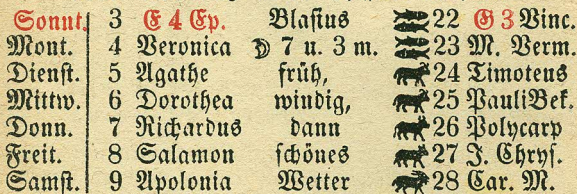 Sonnt. 3 E 4 Ep. Blasius 22 G 3 Vinc.
Mont. 4 Veronica ☽ 7 u. 3 m. 23 M. Verm.
Dienst. 5 Agathe früh, 24 Timoteus
Mittw. 6 Dorothea windig, 25 Pauli Bek.
Donn. 7 Richardus dann 26 Polycarp
Freit. 8 Salamon schönes 27 J. Chrys.
Samst. 9 Apolonia Wetter 28 Car. M.